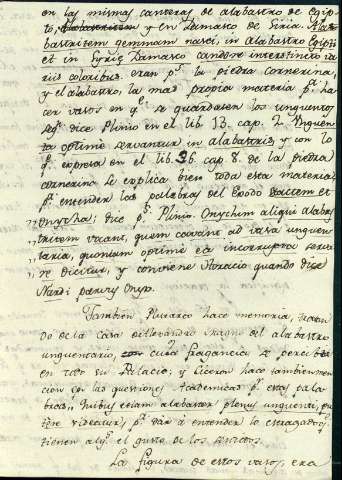 en las mismas canteras de alabastro de Egip
to, y en Damasco de Siria. Ala-
bastritem gemmam nasci, in Alabastro Egipti
et in Syriæ Damasco candore interstincto va
riis coloribus. eran ps. la piedra cornerina,
y el alabastro, la mas propia materia pa. ha
cer vasos en qe. se guardasen los unguentos
dice Plinio en el lib. 13. cap. 2. Unguen
ta optime servantur in alabastris, y con lo
qe. expresa en el lib. 36. cap. 8. de la piedra
cornerina se explica bien toda esta materia
pa. entender las palabras del Exodo et
Onycha; dice ps. Plinio. Onychim aliqui alabas
tritem vocant, quem cavant ad vasa unguen
taria, quoniam optimè ea incorrupta serva
re dicitur, y conviene Horacio quando dice
Nardi parvus Onyx.
Tambien Plutarco hace memoria, tratan
do de la casa de Alexandro Magno del alabastro
unguentario, cuya fragancia se percibia
en todo su Palacio; y Ciceron hace tambien men
cion en las questiones Academicas pr. estas pala
bras, Quibus etiam alabaster plenus unguenti, pu
tere videatur, pa. dar à entender lo estragado qe.
tienen algs. el gusto de los sentidos.
La figura de estos vasos, era